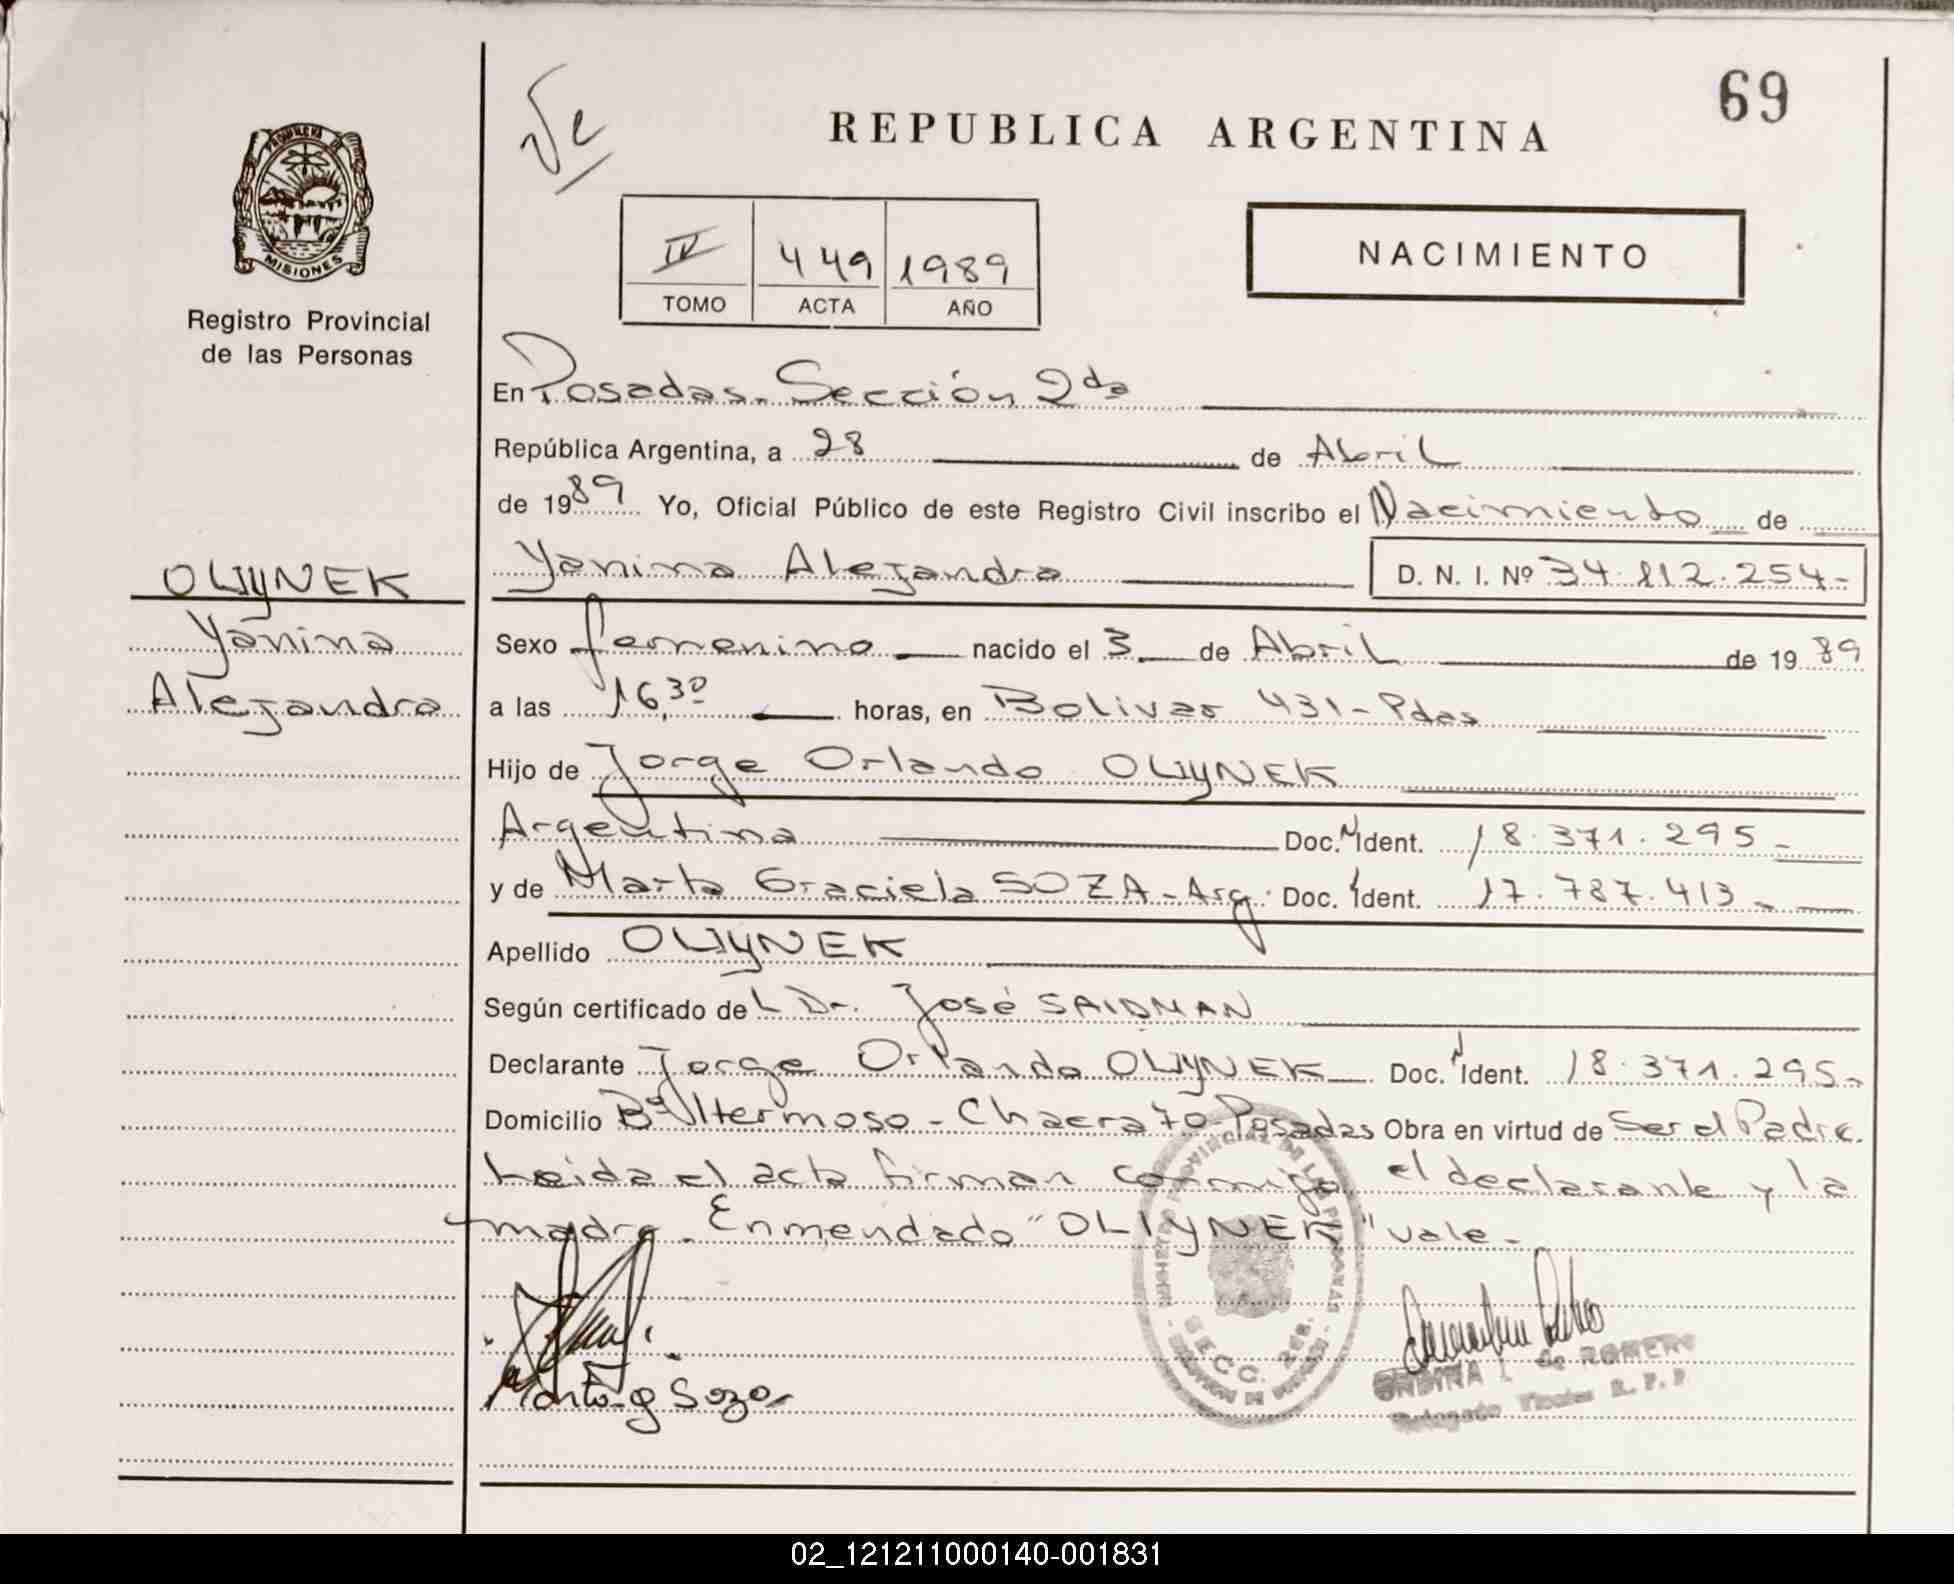 69
REPUBLICA ARGENTINA
PROVINCIA DE
MISIONES
Registro Provincial
de las Personas
NACIMIENTO
IV 449 1989
TOMO ACTA AÑO
En Posadas. Sección 2da
República Argentina, a 28 de Abril
de 1989 Yo, Oficial Público de este Registro Civil inscribo el Nacimiento de
Yanina Alejandra D. N. I. Nº 34.812.254-
OLIJYNEK
Yanina
Alejandra
Sexo femenino nacido el 3 de Abril de 1989
a las 16,30 horas, en Bolivar 431- Pdas
Hijo de Jorge Orlando OLIJYNEK
Argentina Doc. N Ident. 18.371.295-
y de Marta Graciela SOZA - Arg. Doc. Ident. 17.787.413-
Apellido OLIJYNEK
Según certificado de L Dr. José SAIDMAN
Declarante Jorge Orlando OLIJYNEK Doc. N Ident. 18.371.295-
Domicilio Bº Vª Hermoso - Chacra 70-Posadas Obra en virtud de Ser el Padre.
Leida el acta firman conmigo el declarante y la
madre. Enmendado "OLIJYNEK" vale-
SECC. 2da.
Marta g Soza
ONDINA I. de ROMERO
Delegado Titular R. P. P.
02_121211000140-001831